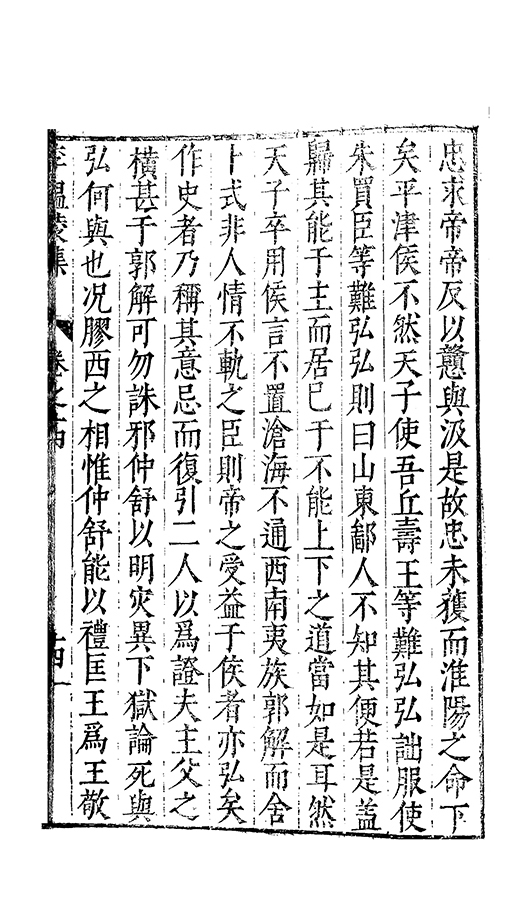 忠求帝帝反以戇與汲是故忠未獲而淮陽之命下
矣平津侯不然天子使吾丘壽王等難弘弘詘服使
朱買臣等難弘弘則曰山東鄙人不知其便若是蓋
歸其能于主而居已于不能上下之道當如是耳然
天子卒用侯言不置滄海不通西南夷族郭解而舍
卜式非人情不軌之臣則帝之受益于侯者亦弘矣
作史者乃稱其意忌而復引二人以爲證夫主父之
橫甚于郭解可勿誅邪仲舒以明灾異下獄論死與
弘何與也况膠西之相惟仲舒能以禮匡王爲王敬
李溫陵集 卷之十四